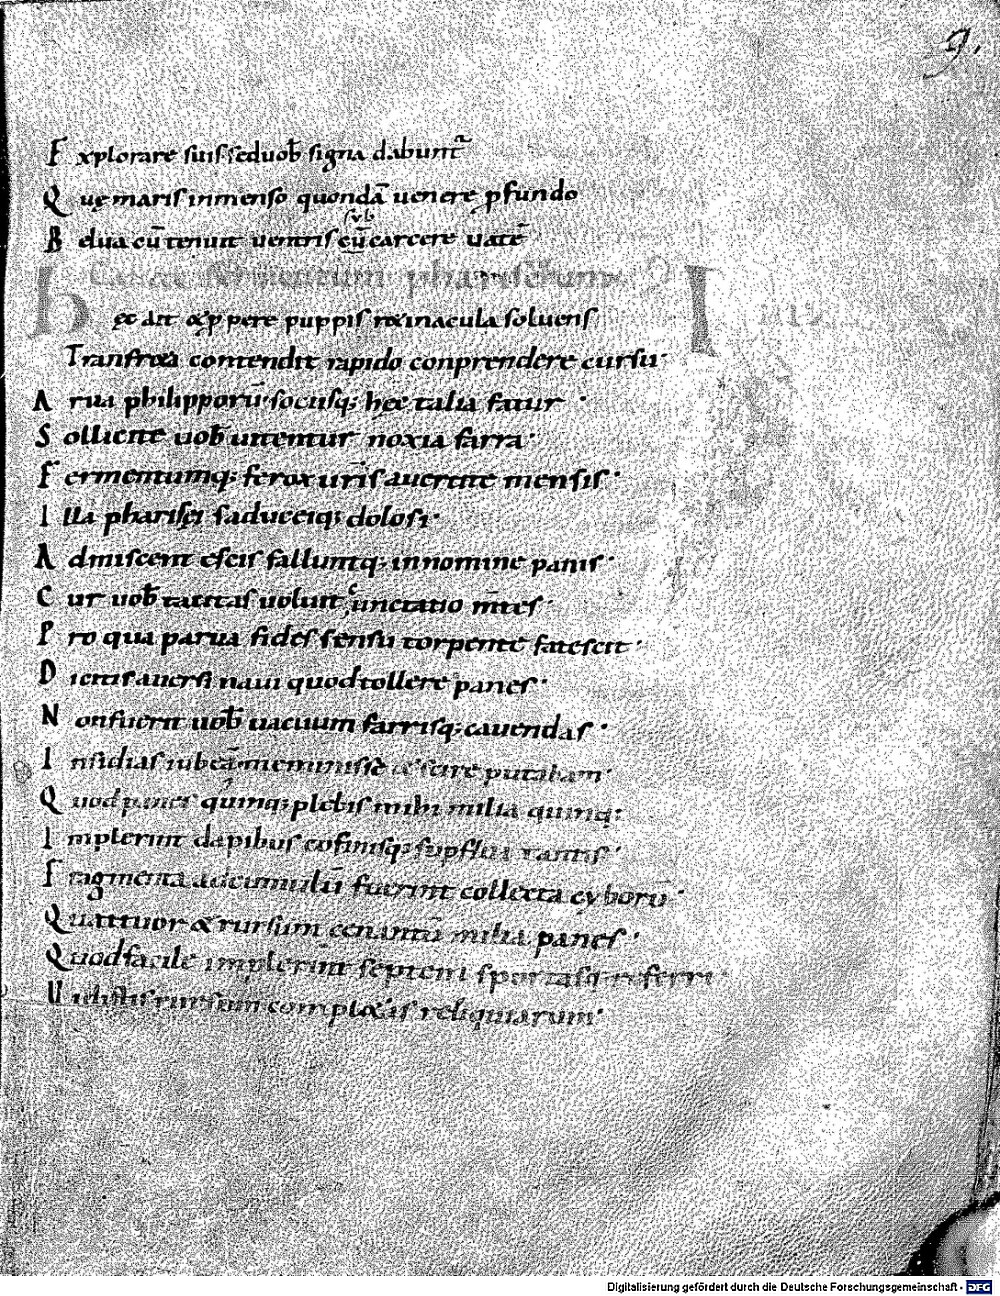 9.
Explorare suis sed uob̄ signa dabunt̃
Quę maris inmenso quondā uenere pfundo
sub
Belua cū tenuit uentris cū carcere uatē
Cauete fermentum phariseorum
Hęc ait & ppere puppis r&inacula soluens
Transfr&a contendit rapido conprendere cursu·
Arua philipporū· sociisq; hec talia fatur·
Sollicite uob̄ uitentur noxia farra·
Fermentumq; ferox ur̄is auertite mensis·
Illa pharisęi saduceiq; dolosi·
Admiscent escis falluntq; in nomine panis·
Cur uob̄ tacitas uoluit cunctatio m̄tes·
Pro qua parua fides sensu torpente fatescit·
Dictis auersi naui quod tollere panes·
Non fuerit uob̄ uacuum farrisq; cauendas·
Insidias iubeā· meminisse & scire putabam·
Quod panes quinq; plebis mihi milia quinq:
Implerint dapibus cofinisq; supflua tantis·
Fragmenta adcumulū fuerint collecta cyborū·
Quattuor & rursum cenantū milia panes·
Quod facile implerint septeni sportasq referri
Uidistis rursum compl&is reliquiarum·
Digitalisierung gefördert durch die Deutsche Forschungsgemeinschaft - DFG